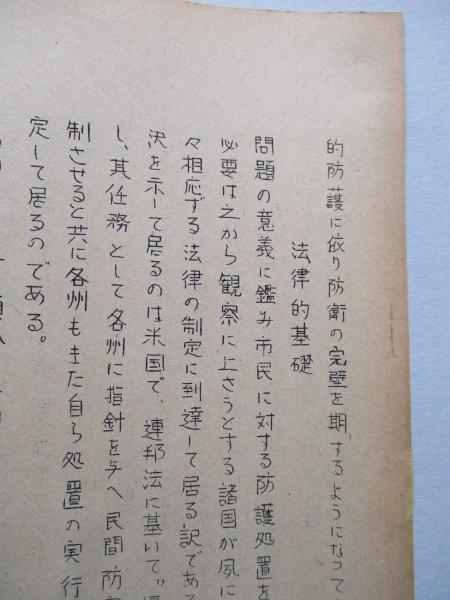 的防護に依り防衛の完壁を期するようになって
法律的基礎
問題の意義に鑑み市民に対する防護処置を
必要は之から観察に上さうとする諸国が夙に
々相応ずる法律の制定に到達して居る記である
決を示して居るのは米国で、連邦法に基いて〃
し、其任務として各州に指針を与へ民間防
制させると共に各州もまた自ら処置の実行
定して居るのである。